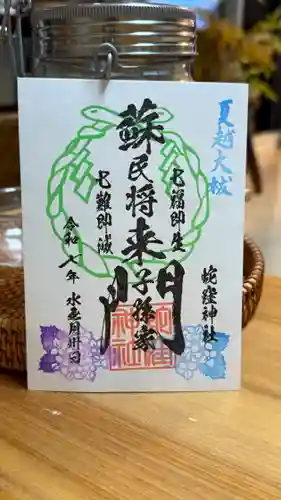 夏越大祓
七福即生
蘇民将来子孫家門
七難即滅
蛇窪神社
令和八年水無月卅日
蛇窪神社